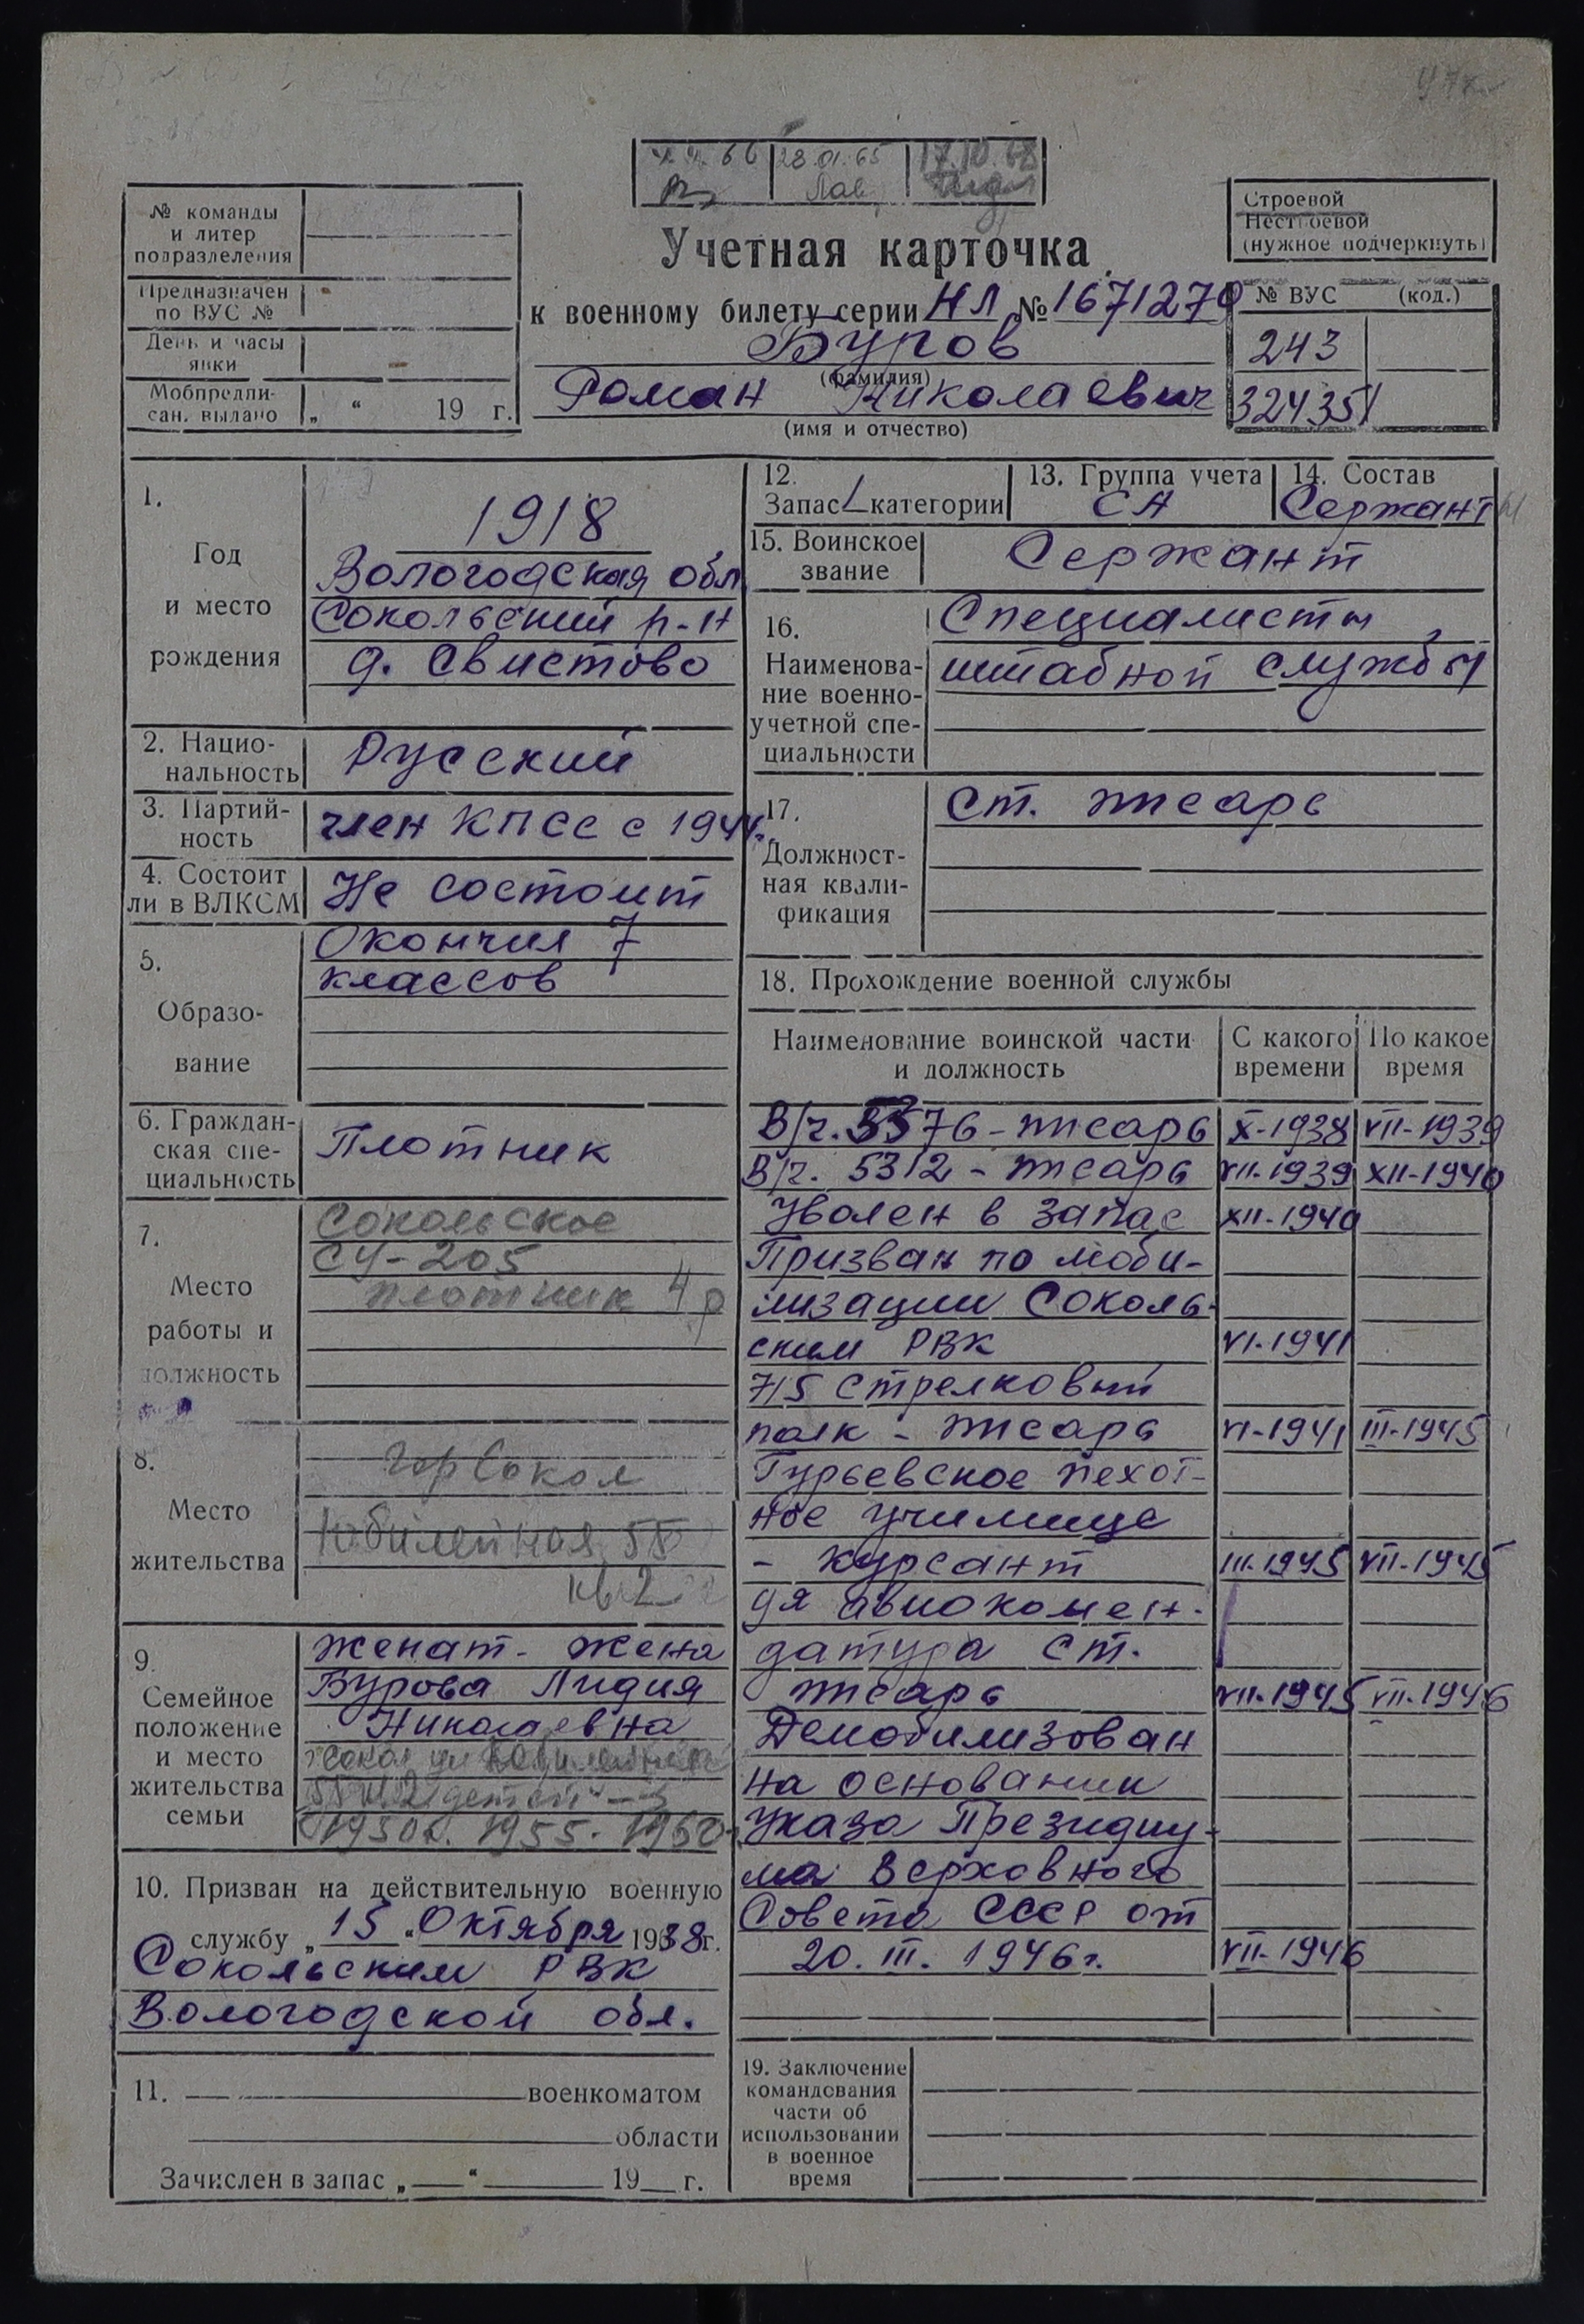 28.01.65
Лав
17.10.68
№ команды
и литер
подразделения
Предназначен
по ВУС №
День и часы
явки
Мобпредпи-
сан. выдано „ “ 19 г.
Строевой
Нестроевой
(нужное подчеркнуть)
Учетная карточка
к военному билету серии НЛ № 1671270
Буров
(фамилия)
Роман Николаевич
(имя и отчество)
№ ВУС (код.)
243
324351
1.
Год
и место
рождения
1918
Вологодская обл
Сокольский р-н
д. Свистово
2. Нацио-
нальность
Русский
3. Партий-
ность
член КПСС с 1944г.
4. Состоит
ли в ВЛКСМ
Не состоит
5.
Образо-
вание
Окончил 7
классов
6. Граждан-
ская спе-
циальность
Плотник
7.
Место
работы и
должность
Сокольское
СУ-205
плотник 4 р
8.
Место
жительства
гор Сокол
Юбилейная 55
кв 2
9.
Семейное
положение
и место
жительства
семьи
женат - жена
Бурова Лидия
Николаевна
г Сокол ул Юбилейная
детей - 3
1950г. 1955. 1960
10. Призван на действительную военную
службу „ 15 “ Октября 1938г.
Сокольским РВК
Вологодской обл.
11. военкоматом
области
Зачислен в запас „ “ 19 г.
12.
Запас 1 категории
13. Группа учета
СА
14. Состав
Сержанты
15. Воинское
звание
Сержант
16.
Наименова-
ние военно-
учетной спе-
циальности
Специалисты
штабной службы
17.
Должност-
ная квали-
фикация
ст. писарь
18. Прохождение военной службы
Наименование воинской части
и должность
С какого
времени
По какое
время
В/ч. 5376 - писарь X-1938 VII-1939
В/ч. 5312 - писарь VII-1939 XII-1940
Уволен в запас XII-1940
Призван по моби-
лизации Соколь-
ским РВК VI-1941
715 стрелковый
полк - писарь VI-1941 III-1945
Гурьевское пехот-
ное училище
- курсант III-1945 VII-1945
9я авиокомен-
датура ст.
писарь VII-1945 VII-1946
Демобилизован
на основании
Указа Президиу-
ма Верховного
Совета СССР от
20. III. 1946г. VII-1946
19. Заключение
командования
части об
использовании
в военное
время